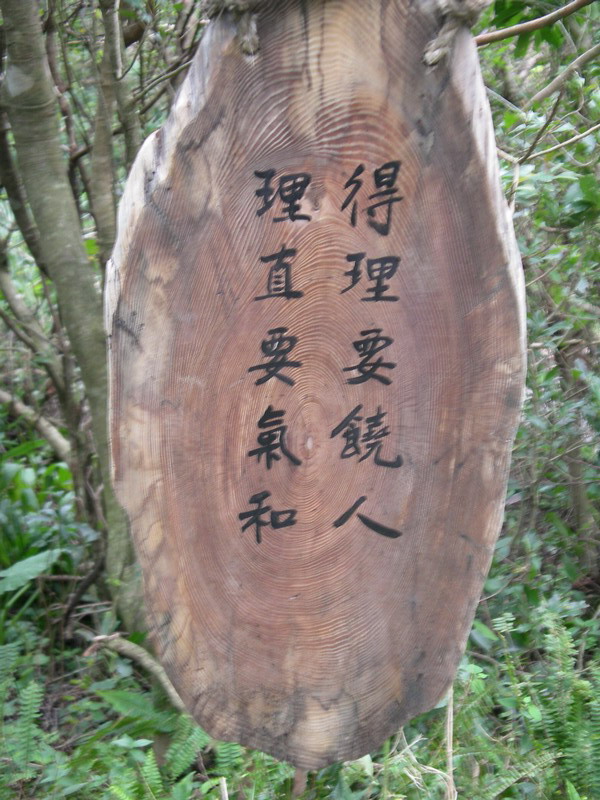 得理要饒人
理直要氣和